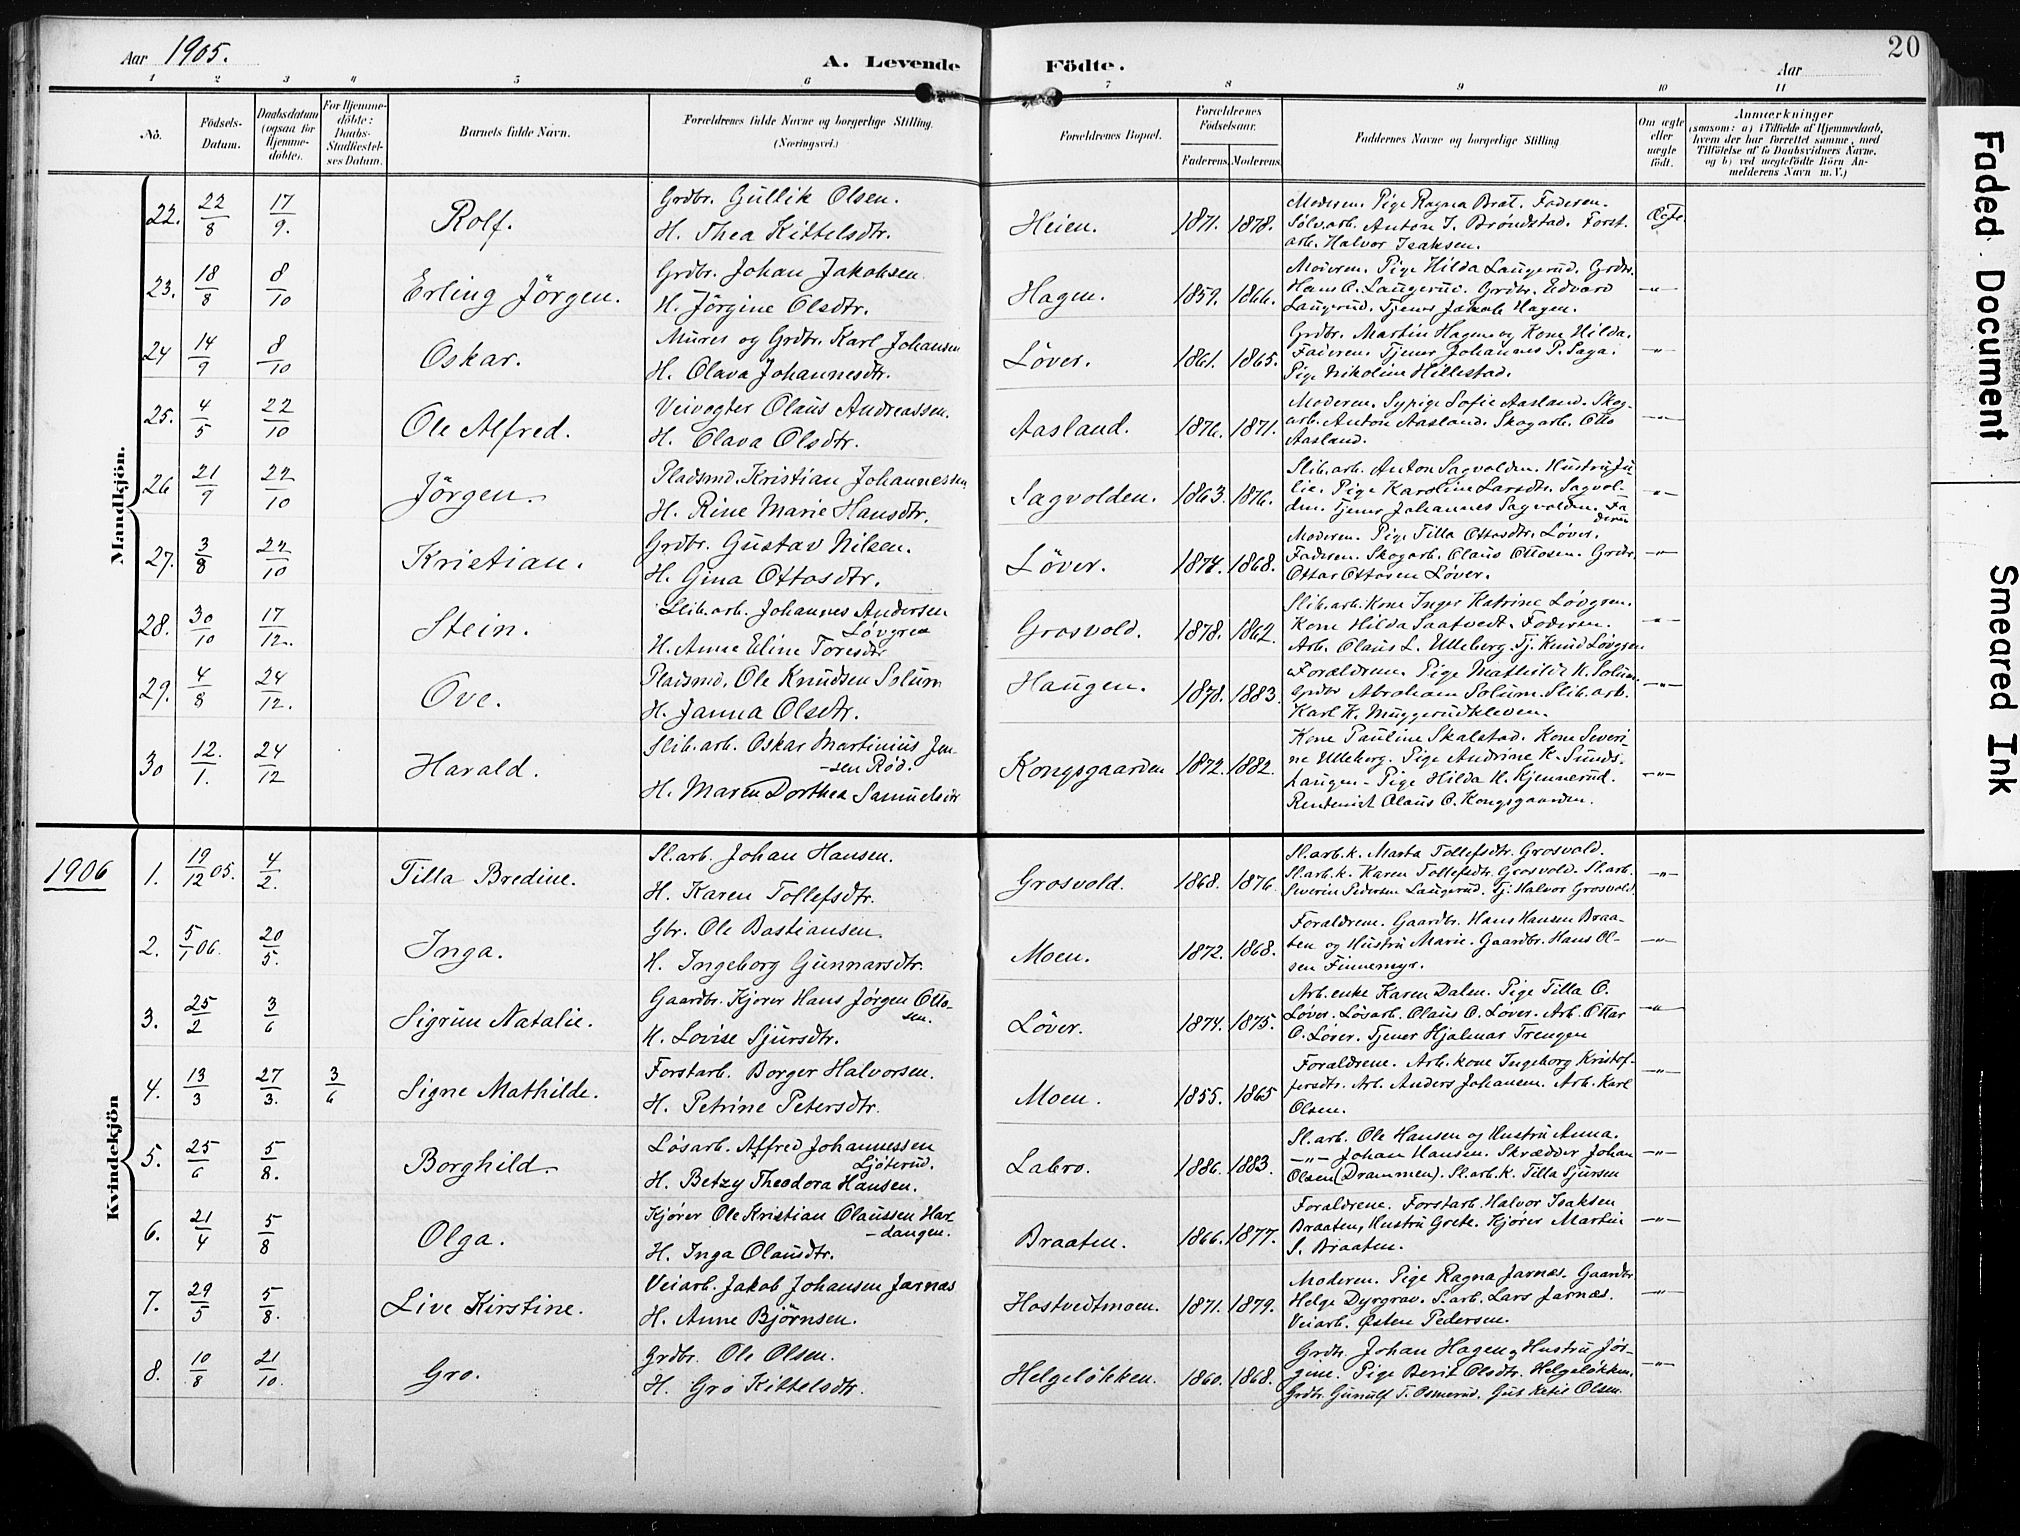 Aar 1905.
A. Levende Födte.
Aar
20
1 2 3 4 5 6 7 8 9 10 11
No.
Födsels-Datum.
Daabsdatum (ogsaa for Hjemmedöbte).
For Hjemmedöbte: Daabs-Stadfæstelses Datum.
Barnets fulde Navn.
Forældrenes fulde Navne og borgerlige Stilling. (Næringsvei.)
Forældrenes Bopæl.
Forældrenes Födselsaar.
Faderens. Moderens.
Faddernes Navne og borgerlige Stilling
Om ægte eller uægte födt.
Anmærkninger
(saasom: a) i Tilfælde af Hjemmedaab, hvem der har forrettet samme, med Tilföielse af to Daabsvidners Navne, og b) ved uægtefödte Börn Anmelderens Navn m. V.)
Mandkjön.
22. 22/8 17/9. Rolf. Grdbr. Gullik Olsen.
H. Thea Kittelsdtr.
Heien. 1871. 1878. Moderen. Pige Ragna Brat. Faderen.
Sølvarb. Anton J. Bröndstad. Forst.
arb. Halvor Isaksen.
Ægte
23. 18/8 8/10 Erling Jörgen. Grdbr. Johan Jakobsen.
H. Jörgine Olsdtr.
Hagen. 1859. 1866. Moderen. Pige Hilda Laugerud. Grdbr.
Hans O. Laugerud. Grdbr. Edvard
Laugerud. Tjener Jakob Hagen.
-"-
24 14/9 8/10 Oskar. Murer og Grdbr. Karl Johansen
H. Olava Johannesdtr.
Löver. 1861. 1865. Grdbr. Martin Hagen og Kone Hilda.
Faderen. Tjener Johannes P. Saga.
Pige Nikoline Hillestad.
-"-
25. 4/5 22/10 Ole Alfred. Veivogter Olaus Andreassen.
H. Olava Olsdtr.
Aasland. 1876. 1871. Moderen. Sypige Sofie Aasland. Skog-
arb. Anton Aasland. Skogarb. Otto
Aasland.
-"-
26 21/9 22/10 Jörgen. Pladsmd. Kristian Johannessen
H. Rine Marie Hansdtr.
Sagvolden. 1863. 1876. Slib.arb. Anton Sagvolden. Hustru Ju-
lie. Pige Karoline Larsdtr. Sagvol-
den. Tjener Johannes Sagvolden. Fa-
deren
-"-
27. 3/8 22/10 Kristian. Grdbr. Gustav Nilsen.
H. Gina Ottosdtr.
Löver. 1874. 1868. Moderen. Pige Tilla Ottosdtr. Löver.
Faderen. Skogarb. Olaus Ottosen. Grdbr.
Ottar Ottosen Löver.
-"-
28. 30/10 17/12. Stein. Slib.arb. Johannes Andersen
Lövgren
H. Anne Eline Toresdtr.
Grosvold. 1878. 1862. Slib.arb. Kone Inger Katrine Lövgren.
Kone Hilda Saatvedt. Faderen.
Arb. Olaus L. Ulleberg. Tj. Knud Lövgren
-"-
29. 4/8 24/12. Ove. Pladsmd. Ole Knudsen Solum
H. Janna Olsdtr.
Haugen. 1878. 1883. Forældrene. Pige Mathilde K. Solum.
Grdbr Abraham Solum. Slib.arb.
Karl K. Muggerudkleven.
-"-
30 12./1. 24/12 Harald. Slib.arb. Oskar Martinius Jen-
sen Röd.
H. Maren Dorthea Samuelsdtr
Kongsgaarden 1872. 1882. Kone Pauline Skalstad. Kone Severi-
ne Ulleberg. Pige Andrine K. Sunds-
haugen - Pige Hilda H. Kjennerud.
Rentenist Olaus O. Kongsgaarden.
-"-
1906
Kvindekjön
1. 19/12 05. 4/2. Tilla Bredine. Sl.arb. Johan Hansen.
H. Karen Tollefsdtr.
Grosvold. 1868. 1876. Sl.arb.k. Marta Tollefsdtr. Grosvold.
Sl.arb.k. Karen Tollefsdtr. Grosvold. Sl.arb.
Severin Pedersen Laugerud. Tj. Halvor Grosvold.
-"-
2. 5/1 06. 20/5. Inga. Gbr. Ole Bastiansen.
H. Ingeborg Gunnarsdtr.
Moen. 1872. 1868. Forældrene. Gaardbr. Hans Hansen Braa-
ten og Hustru Marie. Gaardbr. Hans Ol-
sen Finnemyr.
-"-
3. 25/2 3/6 Sigrun Natalie. Gaardbr. Kjører Hans Jørgen Otto-
sen.
H. Lovise Sjursdtr.
Löver. 1874. 1875. Arb.enke Karen Dalen. Pige Tilla O.
Löver. Løsarb. Olaus O. Løver. Arb. Ottar
O. Løver. Tjener Hjalmar Trengen
-"-
4. 13/3 27/3. 3/6 Signe Mathilde. Forstarb. Borger Halvorsen.
H. Petrine Petersdtr.
Moen. 1855. 1865 Forældrene. Arb.kone Ingeborg Kristof-
fersdtr. Arb. Anders Johansen. Arb. Karl
Olsen.
-"-
5. 25/6 5/8. Borghild. Løsarb. Alfred Johannessen
Ljøterud.
H. Betzy Theodora Hansen.
Labro. 1886. 1883. Sl.arb. Ole Hansen og Hustru Anna.
-"- Johan Hansen. Skrædder Johan
Olsen (Drammen). Sl.arb.k. Tilla Sjursen
-"-
6. 21/4 5/8 Olga. Kjører Ole Kristian Olaussen Har-
dangen.
H. Inga Olausdtr.
Braaten. 1866. 1877. Forældrene. Forstarb. Halvor Isaksen
Braaten, Hustru Grete. Kjører Martin
S. Braaten.
-"-
7. 29/5 5/8. Live Kirstine. Veiarb. Jakob Johansen Jarnæs
H. Anne Bjørnsen.
Hostvedtmoen. 1871. 1879. Moderen. Pige Ragna Jarnæs. Gaardbr
Helge Dyrgrav. Sl.arb. Lars Jarnæs.
Veiarb. Østen Pedersen.
-"-
8. 10/8 21/10. Gro. Grdbr. Ole Olsen.
H. Gro Kittelsdtr.
Helgeløkken. 1860. 1868. Grdbr. Johan Hagen, Hustru Jör-
gine. Pige Berit Olsdtr. Helgeløkken.
Grdbr. Gunulf T. Osmerud. Gut Ketil Olsen.
-"-
Faded Document
Smeared Ink